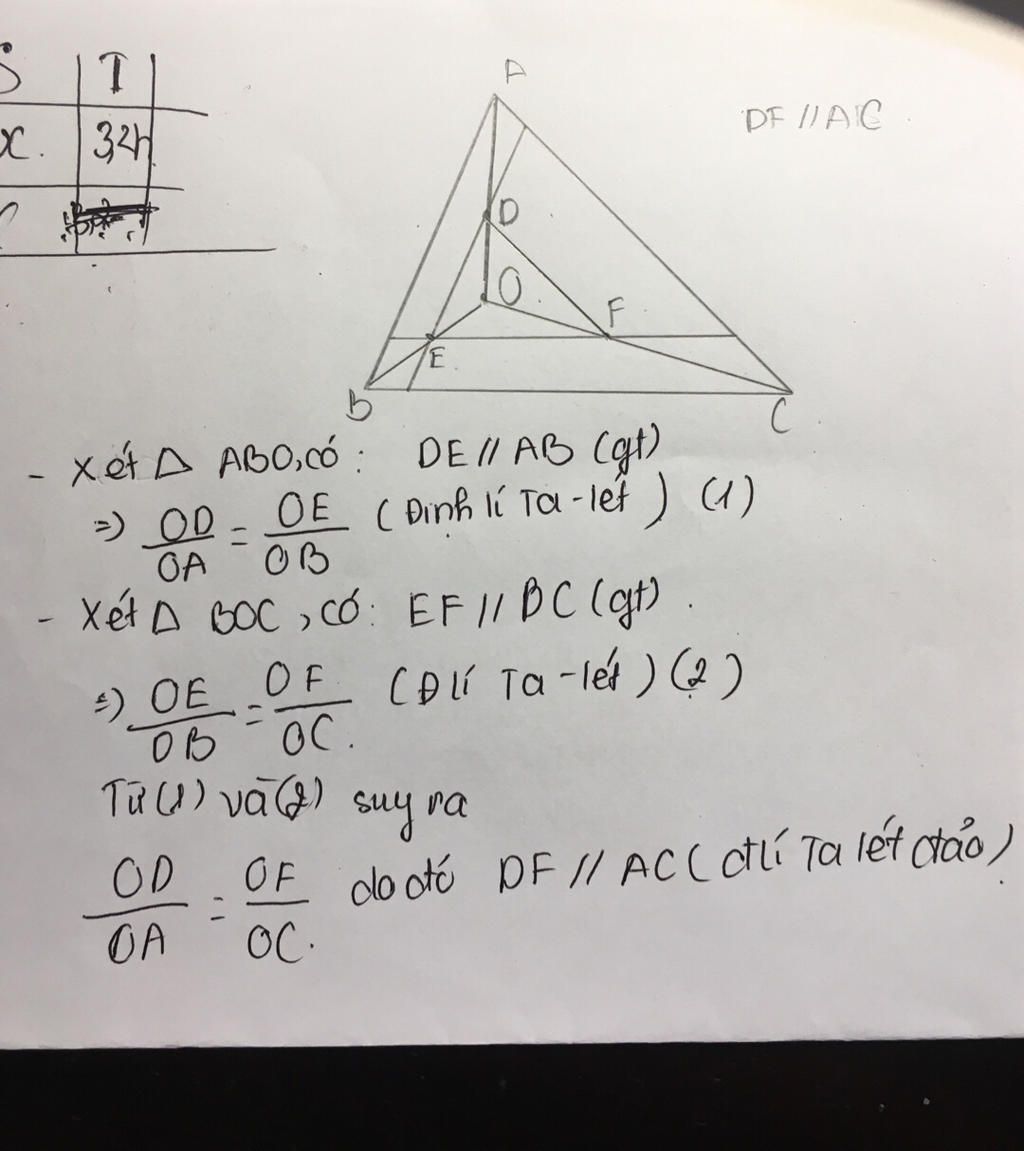 S T
x. 3,2h
A
DF // AC
D
O
F
E
B
C
- Xét Δ ABO, có: DE // AB (gt)
=> OD/OA = OE/OB (Định lí Ta-lét) (1)
- Xét Δ BOC, có: EF // BC (gt).
=> OE/OB = OF/OC. (Đlí Ta-lét) (2)
Từ (1) và (2) suy ra
OD/OA = OF/OC. do đó DF // AC (đlí Ta lét đảo)